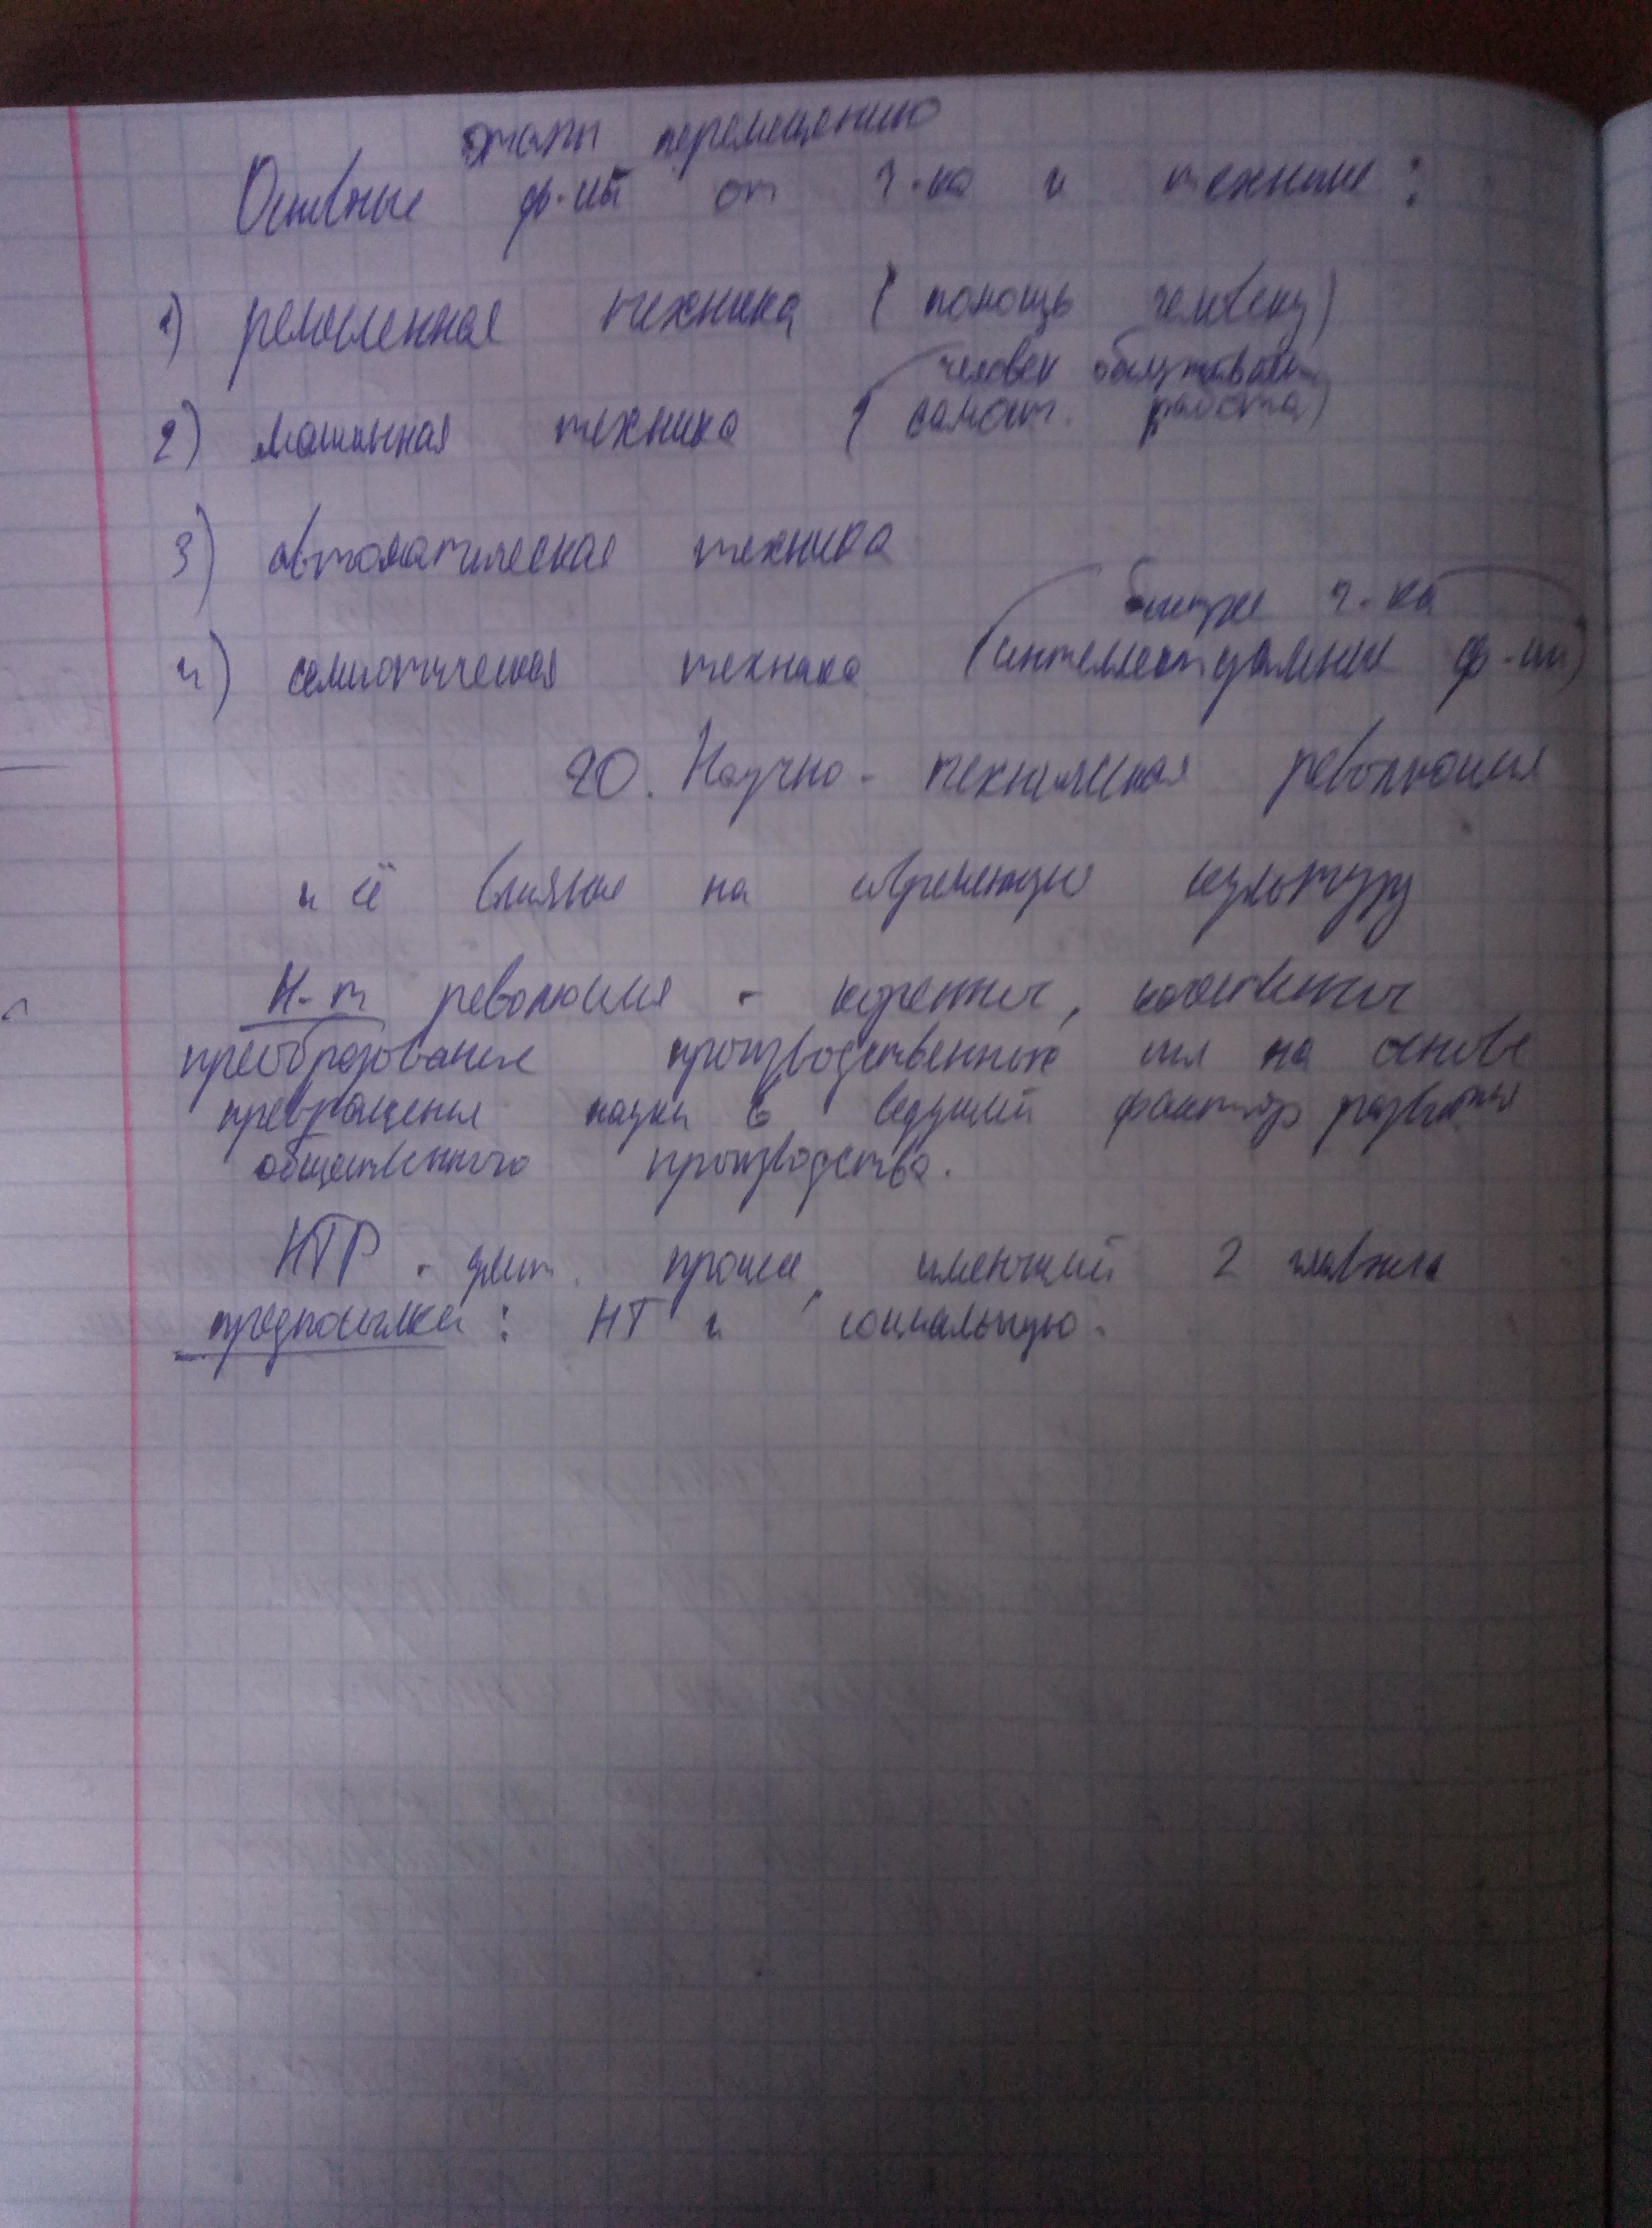 этапы перемещению
Основные ф-ий от ч-ка к технике:
1) ремесленная техника (помощь человеку)
человек обслуживает
2) машинная техника (самост. работа)
3) автоматическая техника
быстрее ч-ка
4) семиотическая техника (интеллектуальные ф-ии)
20. Научно-техническая революция
и её влияние на современную культуру
Н-т революция - коренное, качественное
преобразование производственных сил на основе
превращения науки в ведущий фактор развития
общественного производства.
НТР - длит. процесс, имеющий 2 главные
предпосылки: НТ и социальную.